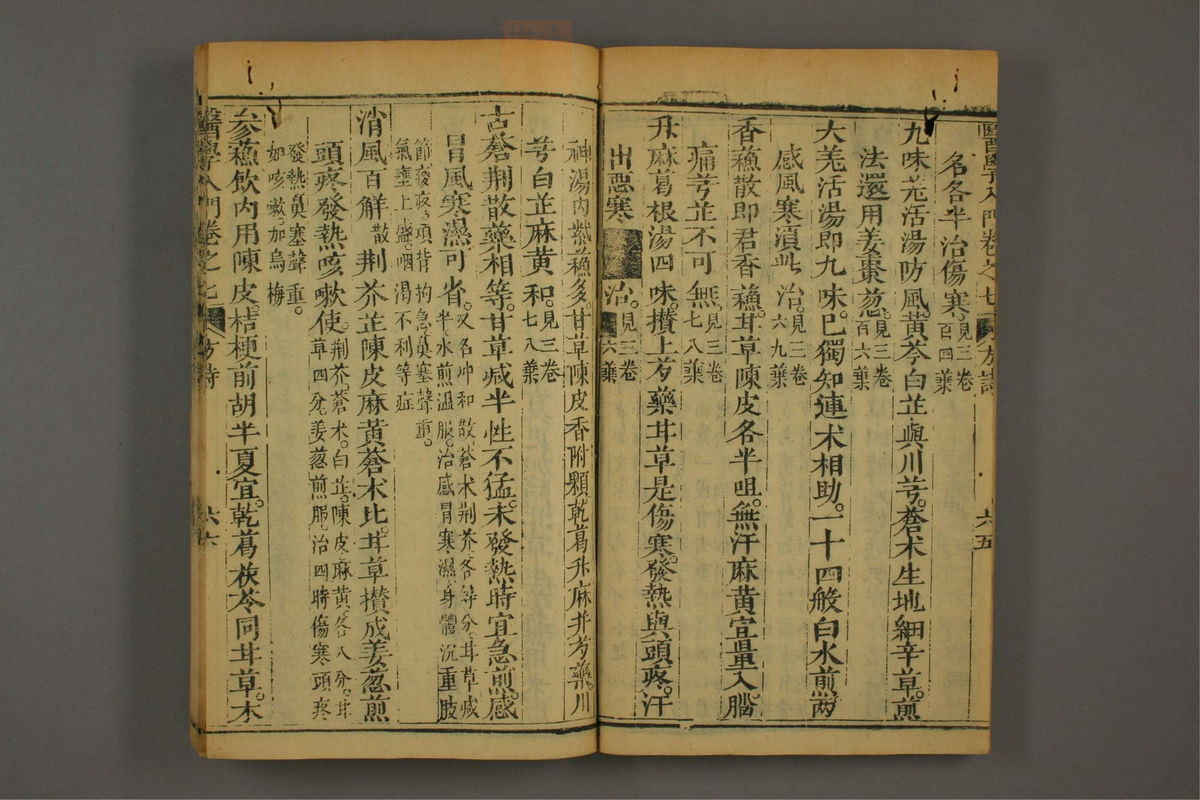 醫學入門卷之七
方詩
六五
名各半治傷寒。見三卷
百四葉
九味羌活湯防風黃芩白芷與川芎。蒼朮生地細辛草。煎
法還用姜棗葱。見三卷
百六葉
大羌活湯即九味。已獨知連朮相助。二十四般白水煎兩
感風寒湏此治。見三卷
六九葉
香蘓散即君香蘓。甘草陳皮各半咀。無汗麻黃宜量入腦
痛芎芷不可無。見三卷
七八葉
升麻葛根湯四味。攢上芍藥甘草是傷寒。發熱與頭疼。汗
出惡寒
治。見三卷
六葉
神湯內紫蘓多。甘草陳皮香附顆乾葛升麻并芍藥。川
芎白芷麻黃和。見三卷
七八葉
古蒼荆散藥相等。甘草減半性不猛。未發熱時宜急煎。感
冒風寒濕可省。又名冲和散蒼朮荆芥各等分甘草減
半水煎溫服。治感冒寒濕身體沉重肢
節痠疼。項背拘急鼻塞聲重。
氣壅上盛。咽渴不利等症
消風百解散荆芥芷陳皮麻黃蒼朮比。甘草攢成姜葱煎
頭疼發熱咳嗽使。荆芥。蒼朮。白芷。陳皮麻黃。各八分。甘
草四分姜葱煎服。治四時傷寒頭疼
發熱鼻塞聲重。
如咳嗽加烏梅
參蘓飲內用陳皮。桔梗前胡半夏宜。乾葛茯苓同甘草。木
醫學入門卷之七
方詩
六六